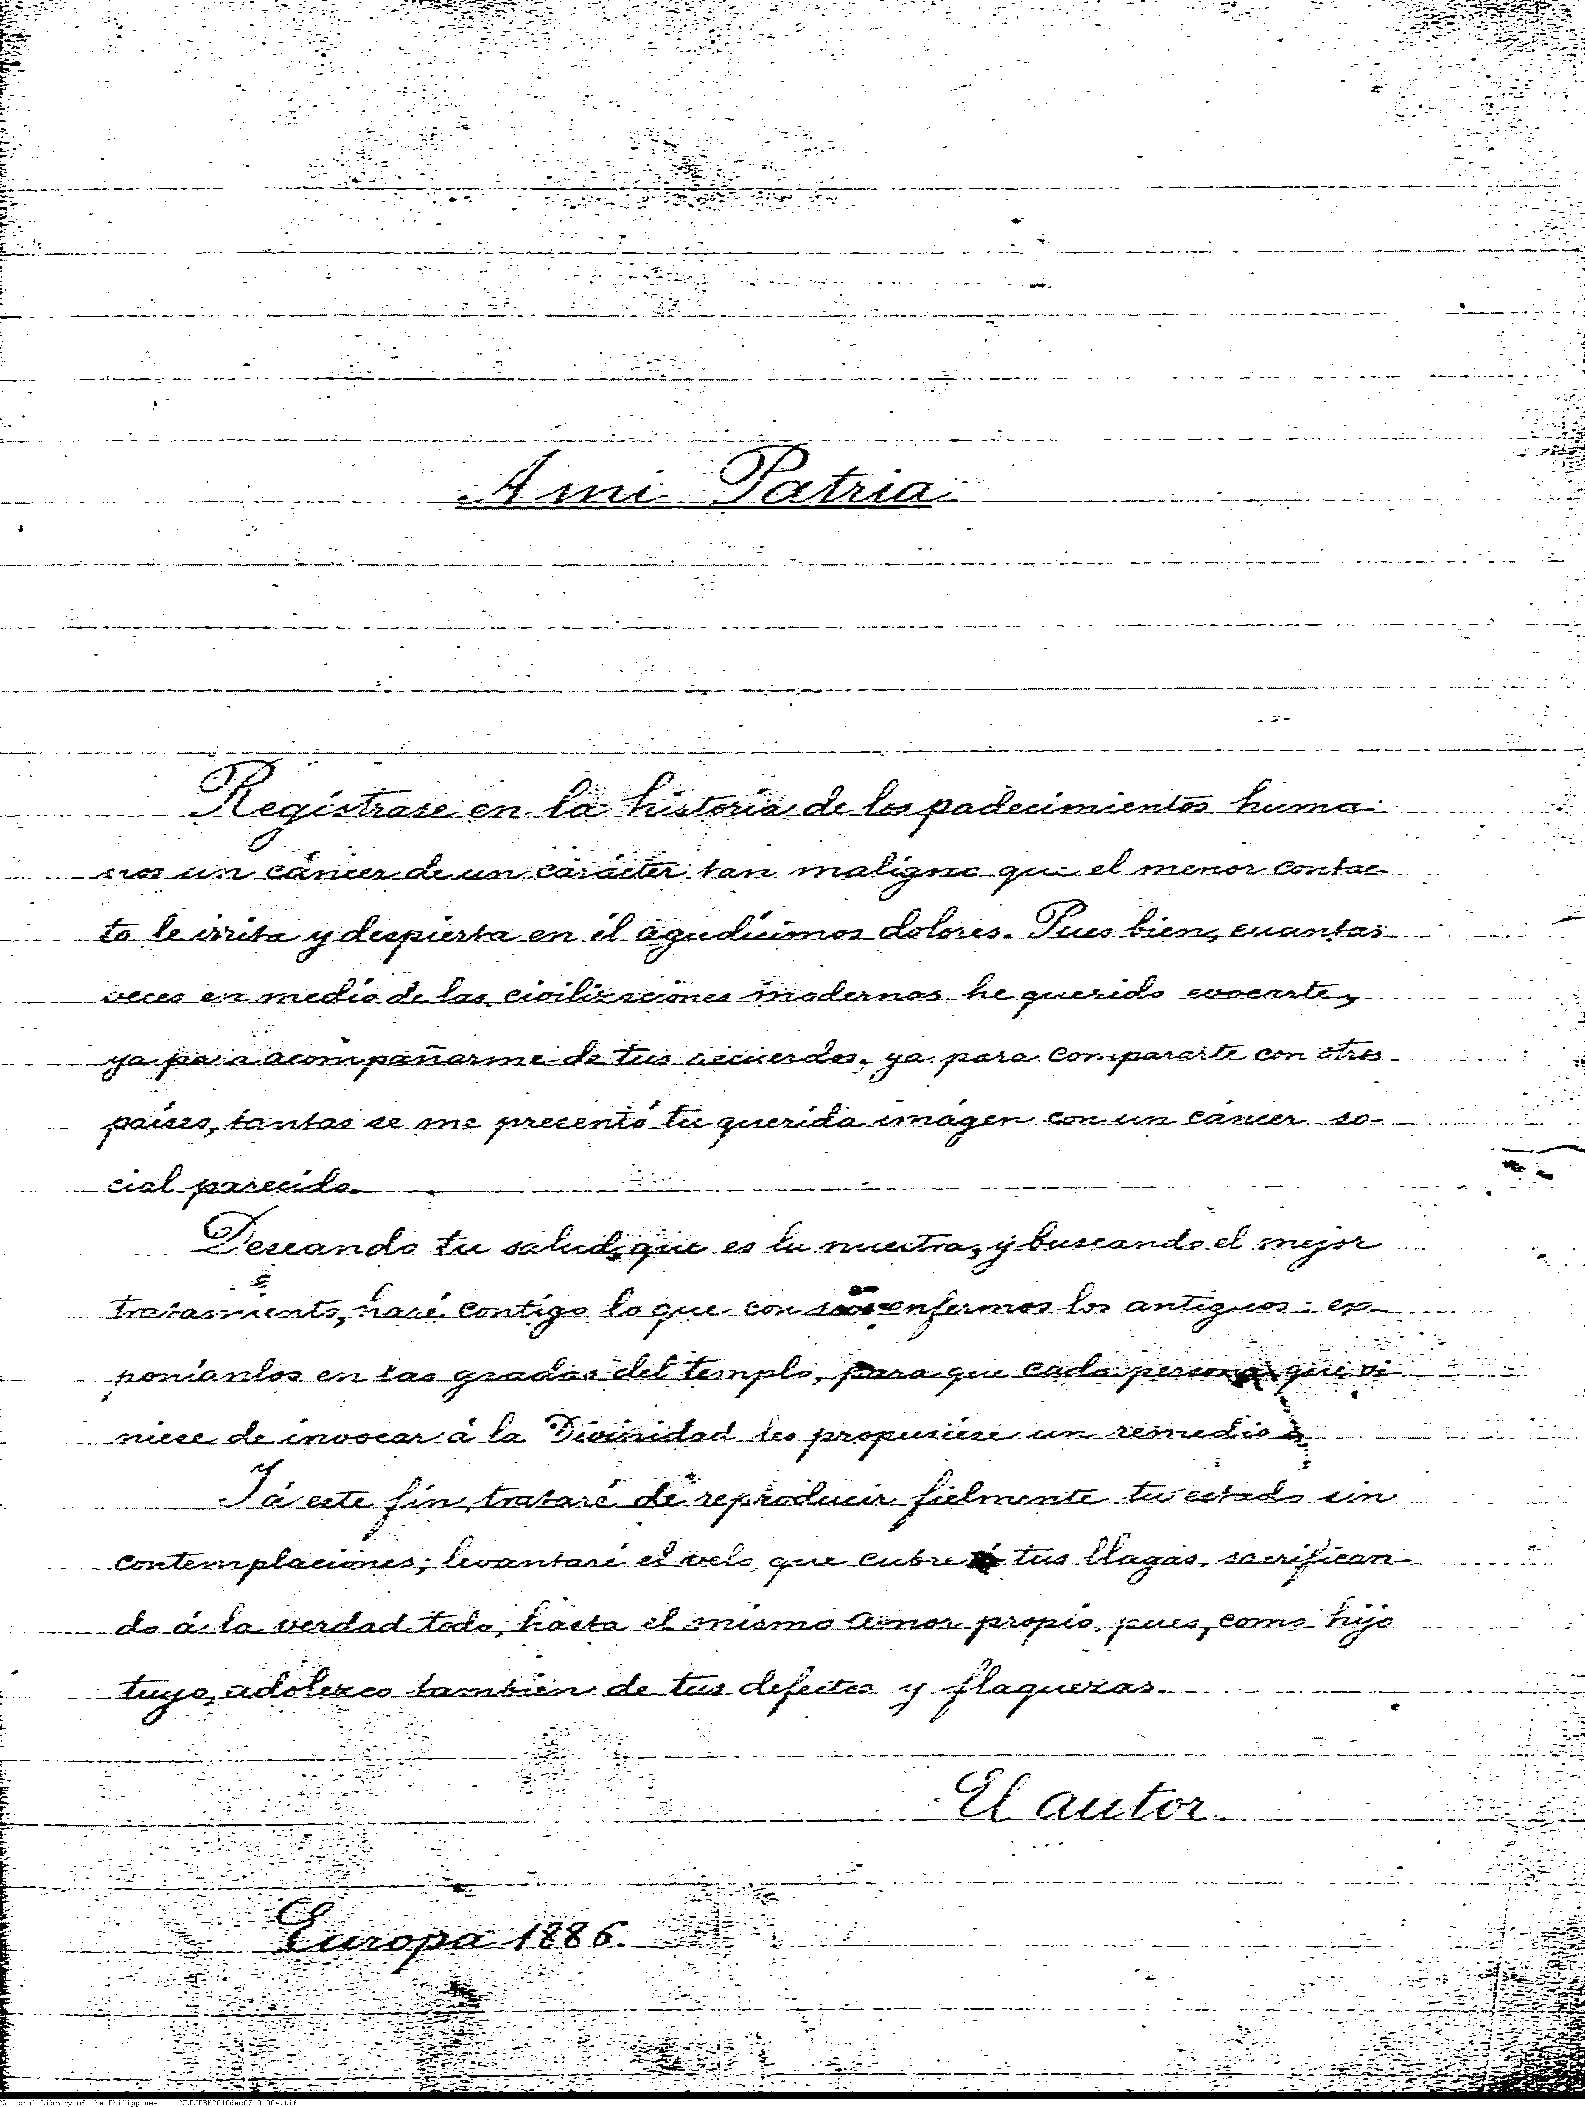 A mi Patria
Regístrase en la historia de los padecimientos huma-
nos un cáncer de un carácter tan maligno que el menor contac-
to le irrita y despierta en él agudísimos dolores. Pues bien, cuantas
veces en medio de las civilizaciones modernas he querido evocarte,
ya para acompañarme de tus recuerdos, ya para compararte con otros
países, tantas se me presentó tu querida imágen con un cáncer so-
cial parecido.
Deseando tu salud, que es la nuestra, y buscando el mejor
tratamiento, haré contigo lo que con sus enfermos los antiguos: ex-
poníanlos en las gradas del templo, para que cada persona que vi
niese de invocar á la Divinidad les propusiese un remedio
Y á este fin, trataré de reproducir fielmente tu estado sin
contemplaciones; levantaré el velo que cubre tus llagas, sacrifican-
do á la verdad todo, hasta el mismo amor propio, pues, como hijo
tuyo, adolezco tambien de tus defectos y flaquezas.
El autor.
Europa 1886.